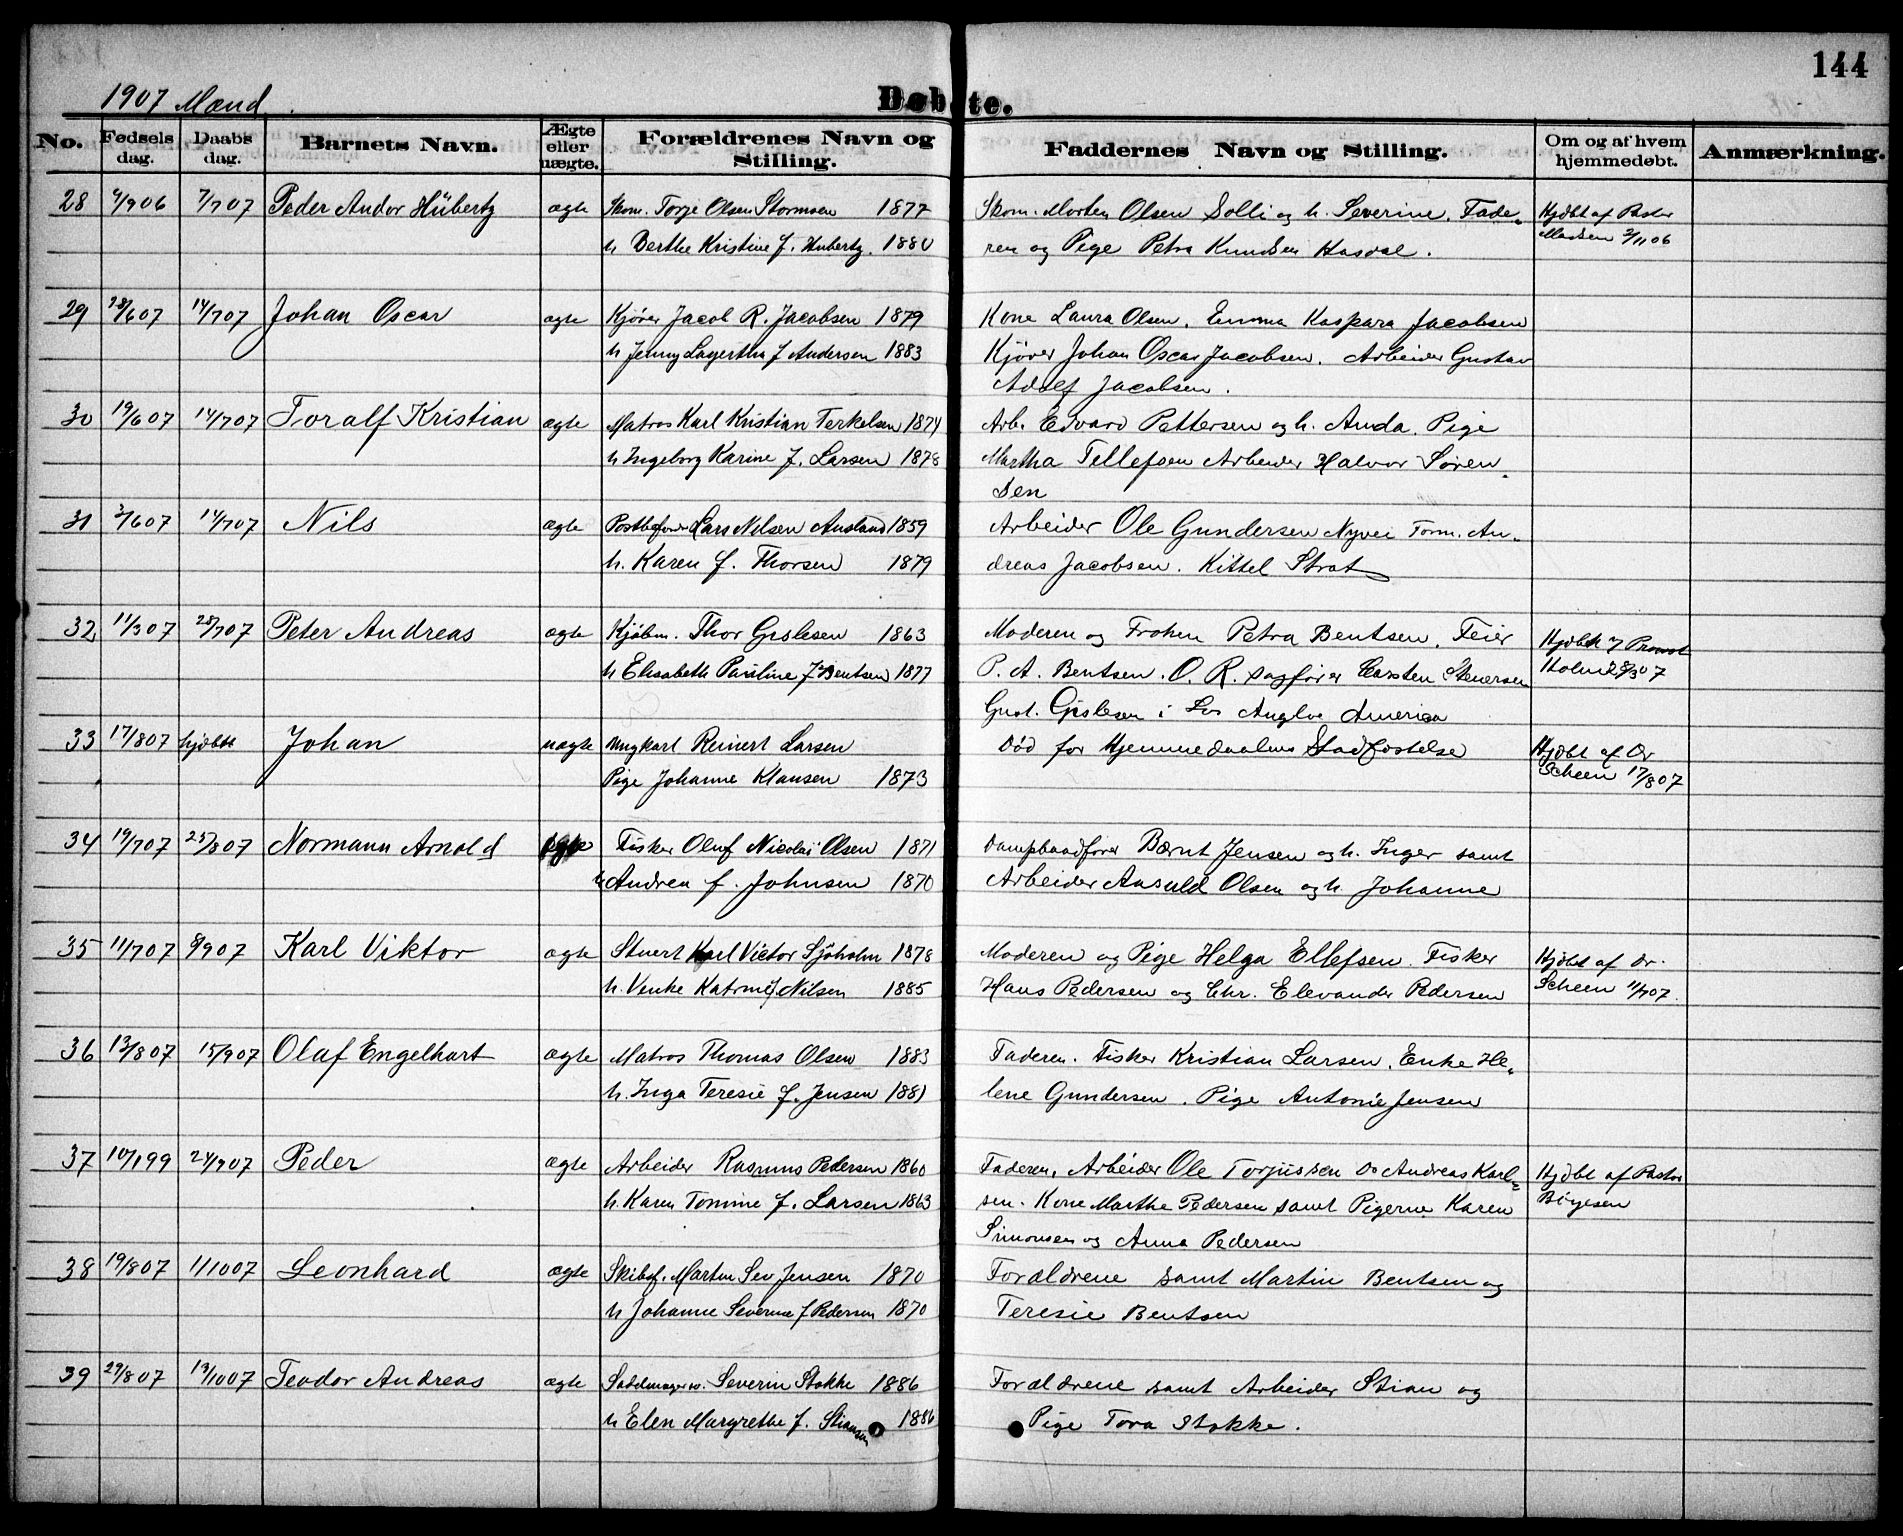 144
1907 Mænd.
Døbte.
No. Fødsels dag. Daabs dag. Barnets Navn. Ægte eller uægte. Forældrenes Navn og Stilling. Faddernes Navn og Stilling. Om og af hvem hjemmedøbt. Anmærkning.
28 4/906 7/707 Peder Andor Hübertz ægte Skom. Torje Olsen Stormoen 1877 Skom. Morten Olsen Solli og h. Severine. Fade- Hjdbt af Pastor
h Berthe Kristine f. Hubertz. 1880 ren og Pige Petra Knudsen Hasdal. Madsen 2/1106
29 28/607 14/707 Johan Oscar ægte Kjører Jacob R. Jacobsen 1879 Kone Laura Olsen. Emma Kaspara Jacobsen
h Jenny Lagertha f Andersen 1883 Kjører Johan Oscar Jacobsen. Arbeider Gustav
Adolf Jacobsen.
30 19/607 14/707 Toralf Kristian ægte Matros Karl Kristian Terkelsen 1874 Arb. Edvard Pettersen og h. Anda. Pige
h Ingeborg Karine f. Larsen 1878 Martha Tellefsen Arbeider Halvor Søren-
sen
31 3/607 14/707 Nils ægte Postbefører Lars Nilsen Austand 1859 Arbeider Ole Gundersen Nyvei Tøm. An-
h. Karen f. Thorsen 1879 dreas Jacobsen. Kittel Strat
32 11/307 28/707 Peter Andreas ægte Kjøbm. Thor Gislesen 1863 Moderen og Frøken Petra Bentsen. Feier Hjdbt af Provst
h Elisabeth Pauline f Bentsen 1877 P. A. Bentsen. O. R. sagfører Carsten Stenersen Holm 28/307
Gust. Gislesen i Los Anglos America
33 17/807 hjdbt Johan uægte Ungkarl Reinert Larsen Død før Hjemmedaabens Stadfæstelse Hjdbt af Dr
Pige Johanne Klausen 1873 Scheen 17/807
34 19/707 25/807 Normann Arnold ægte Fisker Oluf Nicolai Olsen 1871 Dampbaadfører Bernt Jensen og h. Inger samt
h Andrea f. Johnsen 1870 Arbeider Ansuld Olsen og h Johanne
35 11/707 8/907 Karl Viktor ægte Stuert Karl Victor Sjøholm 1878 Moderen og Pige Helga Ellefsen. Fisker Hjdbt af Dr.
h. Venke Katrine f Nilsen 1885 Hans Pedersen og Chr. Elevander Pedersen Scheen 11/707.
36 13/807 15/907 Olaf Engelhart ægte Matros Thomas Olsen 1883 Faderen. Fisker Kristian Larsen. Enke He-
h. Inga Teresie f. Jensen 1881 lene Gundersen. Pige Antonie Jensen
37 10/199 24/907 Peder ægte Arbeider Rasmus Pedersen 1860 Faderen. Arbeider Ole Torjussen Do Andreas Karl- Hjdbt af Pastor
h. Karen Tomine f. Larsen 1863 sen. Kone Marthe Pedersen samt Pigerne Karen Birgesen
Simonsen og Anna Pedersen
38 19/807 1/1007 Leonhard ægte Skibsf. Martin Sev Jensen 1870 Forældrene samt Martin Bentsen og
h Johanne Severine f Pedersen 1870 Teresie Bentsen
39 29/807 13/1007 Teodor Andreas ægte Sadelmagersv. Severin Stokke 1886 Forældrene samt Arbeider Stian og
h Elen Margrethe f. Stiansen 1886 Pige Tora Stokke.